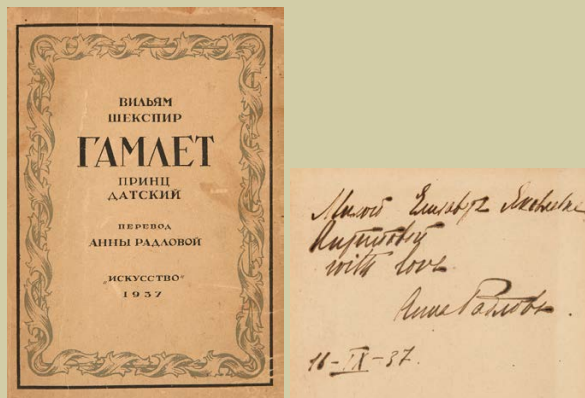 ВИЛЬЯМ
ШЕКСПИР
ГАМЛЕТ
ПРИНЦ
ДАТСКИЙ
ПЕРЕВОД
АННЫ РАДЛОВОЙ
„ИСКУССТВО"
1937
Милой
with love
Анна Радлова
16-IX-37.